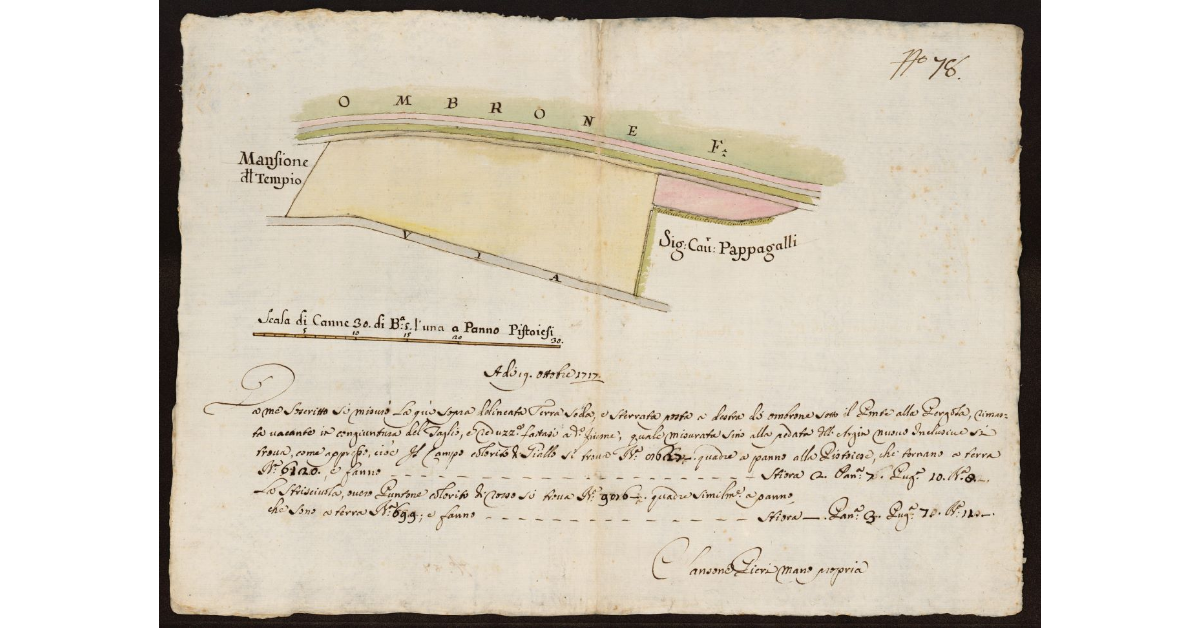 No 78.
OMBRONE F:
Mansione
dll Tempio
VIA
Sig: Cau:r Pappagalli
Scala di Canne 30. di Ba: 5. l'una a Panno Pistoiesi
5 10 15 20 30.
Adì 19. ottobre 1717.
Da me Soscritto si misurò La qui sopra delineata Terra Soda, e Sterrata posta a destra di ombrone sotto il Ponte alla Pergola, rimas=
ta vacante in congiuntura del Taglio, e fattasi a d.o fiume; quale misurata sino alla pedata dll Argin nuovo Inclusive si
trova, come appresso, cioè Il Campo colorito di Giallo si trova quadre a panno alla Pistoiese, che tornano a terra
No: 6120, e fanno Stiora 2. Pan: 7. Pug: 10.
La Strisciuola, overo Puntone colorito di rosso si trova quadre similme a panno
che sono a terra No: 699; e fanno Stiora —. Pan: 3. Pug:
Pieri mano propria